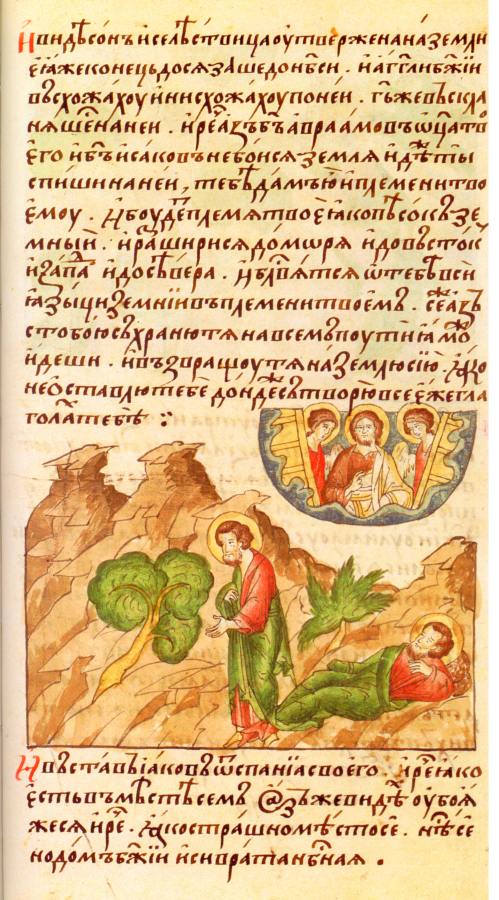 И видѣ сон и се лѣствица оутвержена на земли
еꙗ же конець досязаше до нб҃си . и агг҃ли бж҃ии
въсхожахоу и нисхожахоу по неи . гь҃ же въскла
няше н҃а неи . и реⷱ҇ азъ бъ҃ авраамовъ ѡц҃а тв
его и бъ҃ исаковъ не боися земля идѣ ты
спиши на неи , тебѣ дамъ ю и племени тво
емоу . И боудеⷮ племя твое ꙗко пѣсокъ зе
мныи . и раⷥширися до моря и до въсток
и запаⷣ и до сѣвера . и блⷭ҇вятся ѡ тебѣ вси
ꙗзыци земнїи въ племени твоемъ . се азъ
с тобою съхранюⷮ тя на всемъ поути ꙗмоⷤ
идеши . и възвращоу тя на землю сїю . Яко
не ѡставлю тебе дондеⷤ сътворю все еже гла
голаⷯ тебѣ :
И въставъ іаковъ ѿ спаніа своего . и реⷱ҇ ꙗко
есть въ мѣстѣ семъ азъ же не видѣⷯ оубоя
жеся и реⷱ҇ . Яко страшно мѣсто се . нѣⷭ҇ се
но домъ бж҃іи и си врата нбⷭ҇ная .